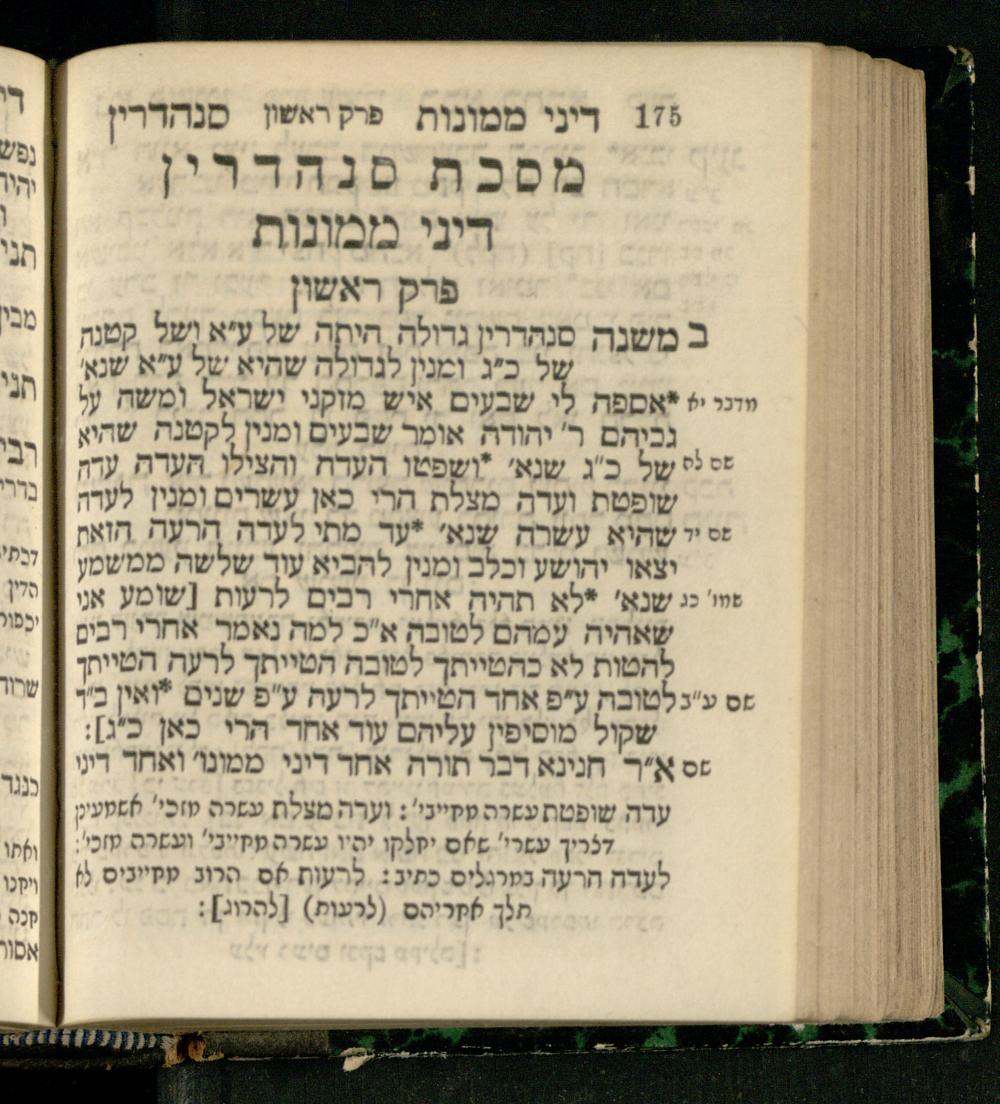 175 דיני ממונות פרק ראשון סנהדרין
מסכת סנהדרין
דיני ממונות
פרק ראשון
ב משנה סנהדרין גדולה היתה של ע״א ושל קטנה
של כ״ג ומנין לגדולה שהיא של ע״א שנא׳
מדבר יא *אספה לי שבעים איש מזקני ישראל ומשה על
גביהם ר׳ יהודה אומר שבעים ומנין לקטנה שהיא
שם לה של כ״ג שנא׳ *ושפטו העדה והצילו העדה עדה
שופטת ועדה מצלת הרי כאן עשרים ומנין לעדה
שם יד שהיא עשרה שנא׳ *עד מתי לעדה הרעה הזאת
יצאו יהושע וכלב ומנין להביא עוד שלשה ממשמע
שמו׳ כג שנא׳ *לא תהיה אחרי רבים לרעות [שומע אני
שאהיה עמהם לטובה א״כ למה נאמר אחרי רבים
להטות לא כהטייתך לטובה הטייתך לרעה הטייתך
שם ע״ב לטובה ע״פ אחד הטייתך לרעה ע״פ שנים *ואין ב״ד
שקול מוסיפין עליהם עוד אחד הרי כאן כ״ג]:
שם א״ר חנינא דבר תורה אחד דיני ממונו׳ ואחד דיני
עדה שופטת עשרה מחייבי׳: ועדה מצלת עשרה מזכי׳ אשמעינן
דצריך עשרי׳ שאם יחלקו יהיו עשרה מחייבי׳ ועשרה מזכי׳:
לעדה הרעה במרגלים כתיב: לרעות אם הרוב מחייבים לא
תלך אחריהם (לרעות) [להרוג]: